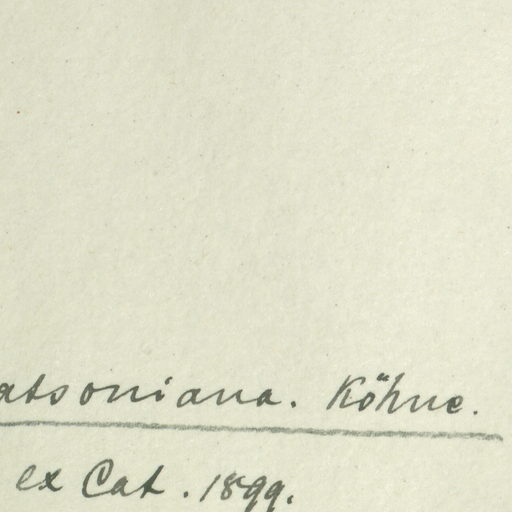 atsoniana. Köhne.
ex Cat. 1899.